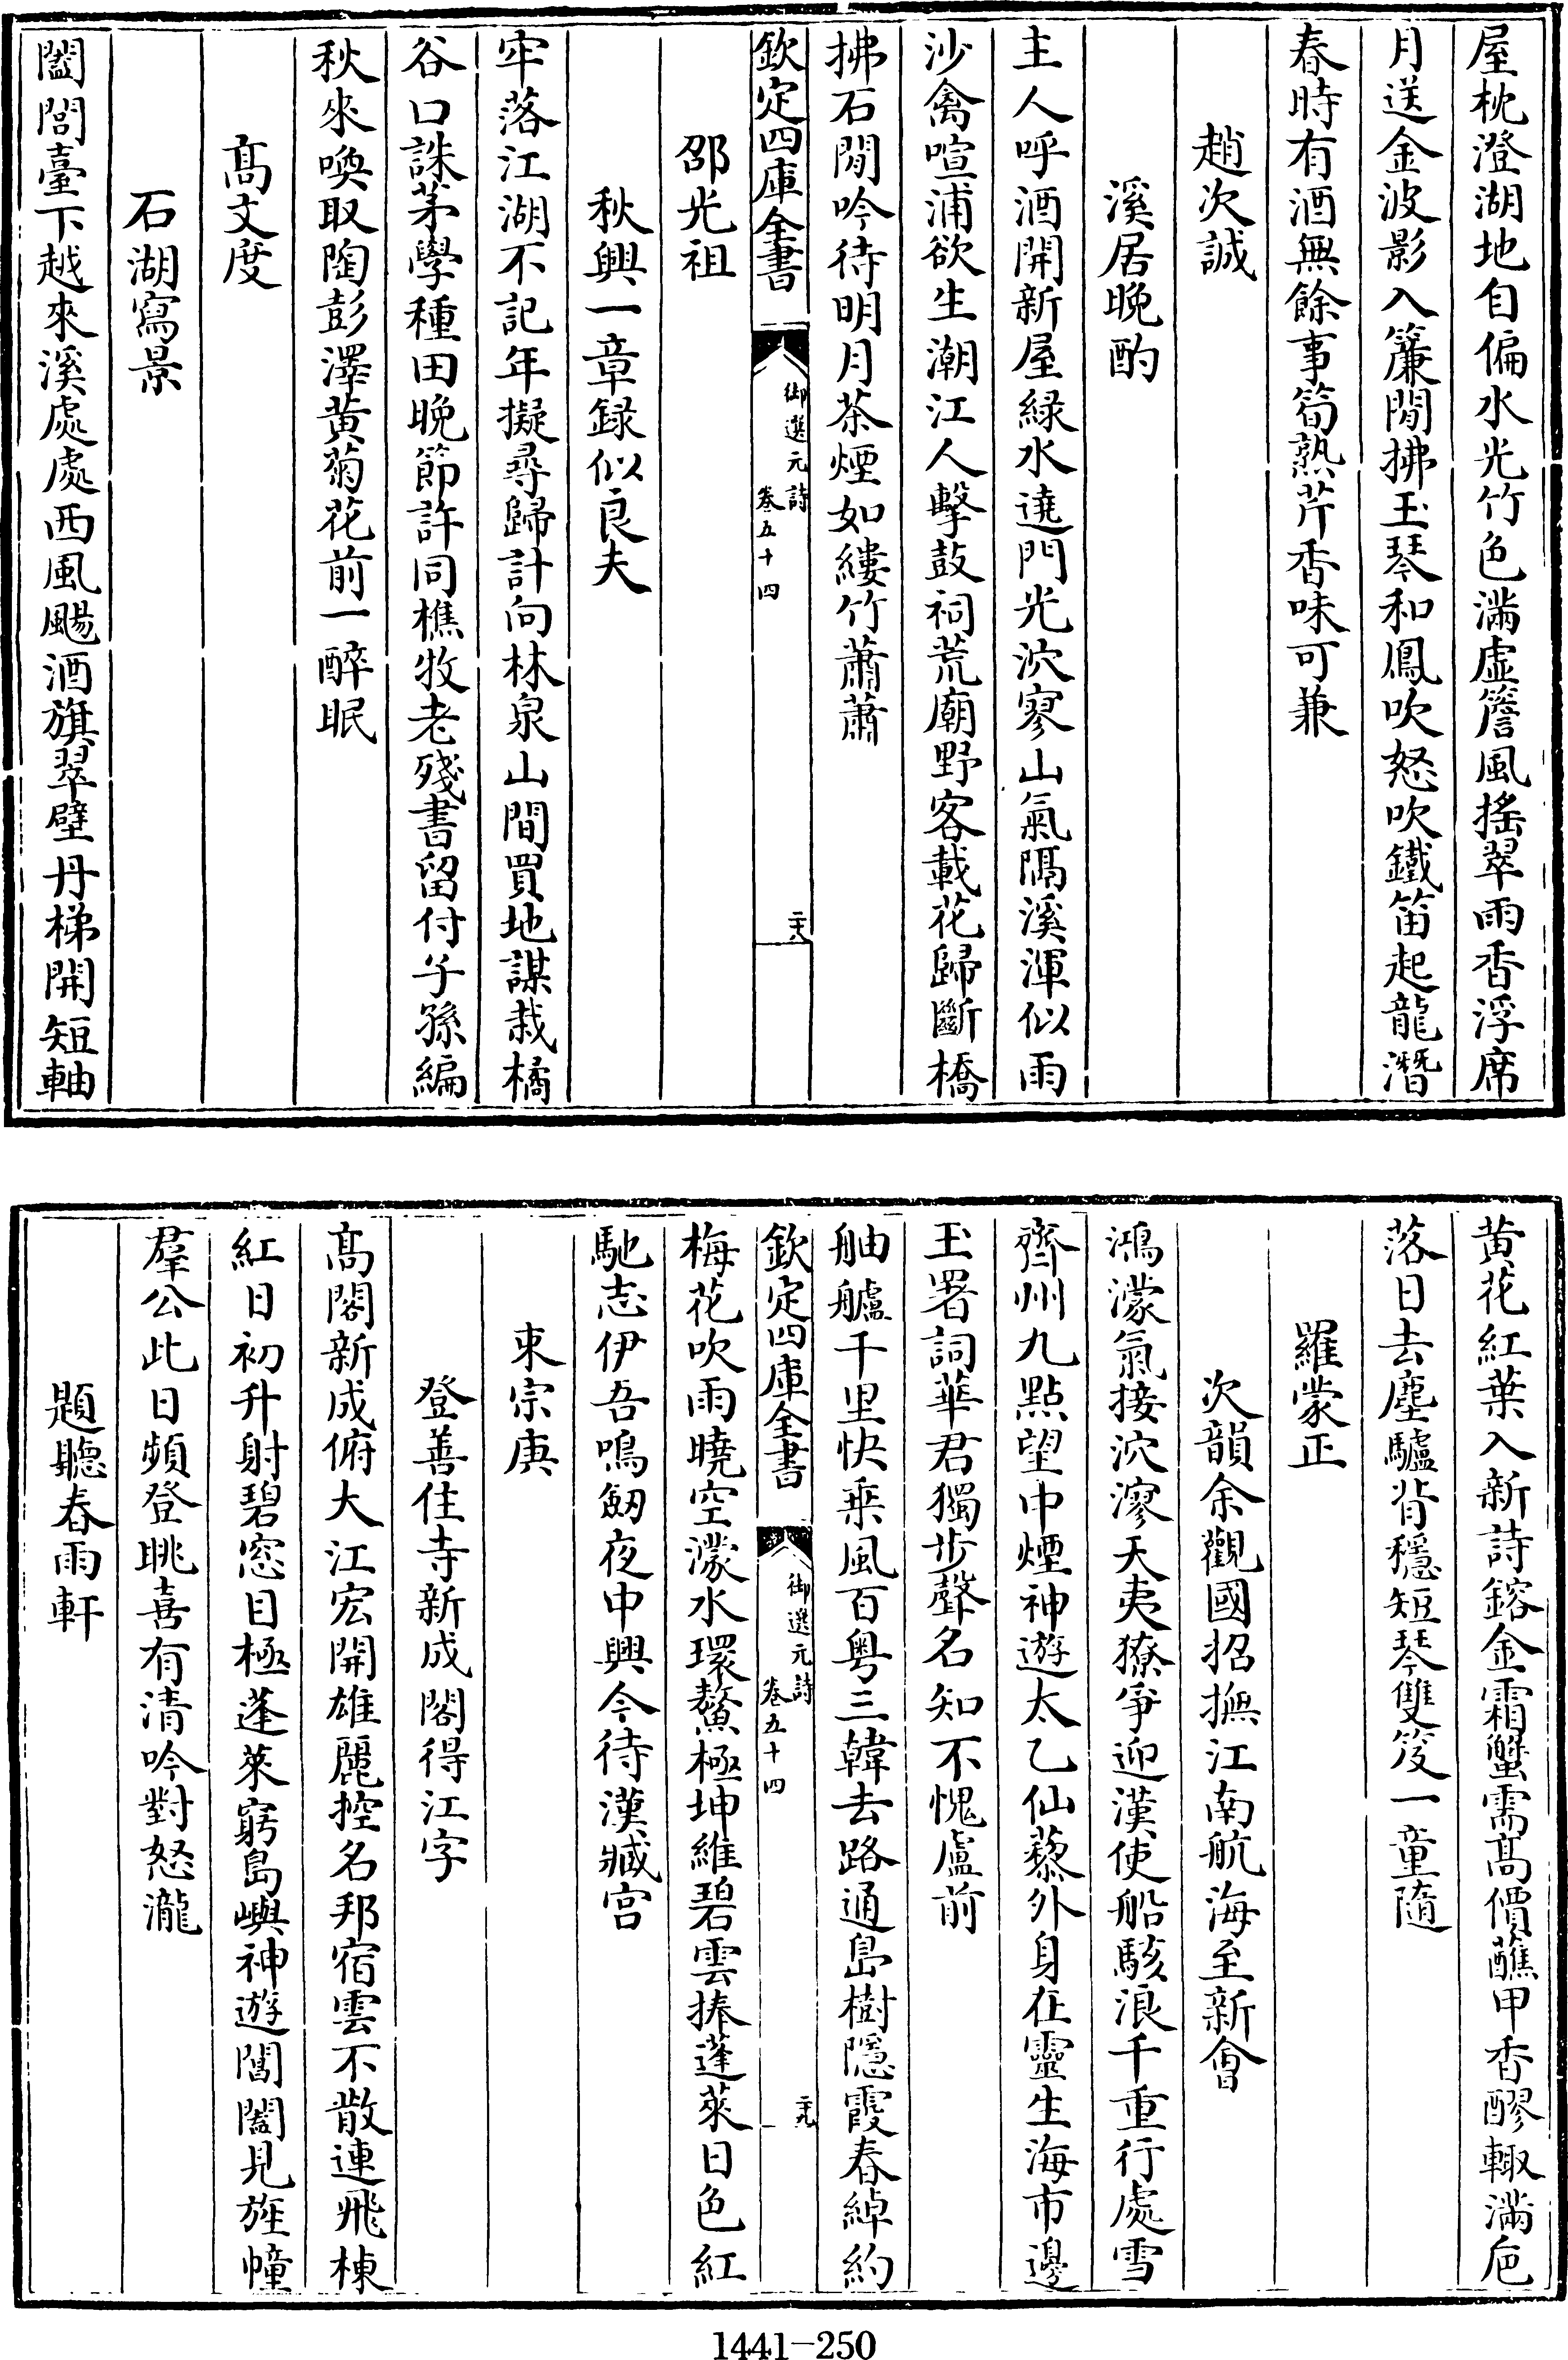 屋枕澄湖地自偏水光竹色滿虛簷風搖翠雨香浮席
月送金波影入簾閒拂玉琴和鳳吹怒吹鐵笛起龍潛
春時有酒無餘事筍熟芹香味可兼
趙次誠
溪居晚酌
主人呼酒開新屋緑水遶門光泬寥山氣隔溪渾似雨
沙禽喧浦欲生潮江人擊鼓祠荒廟野客載花歸斷橋
拂石閒吟待明月茶煙如縷竹蕭蕭
欽定四庫全書
御選元詩
卷五十四
二十八
邵光祖
秋興一章録似良夫
牢落江湖不記年擬尋歸計向林泉山間買地謀栽橘
谷口誅茅學種田晚節許同樵牧老殘書留付子孫編
秋來喚取陶彭澤黄菊花前一醉眠
髙文度
石湖寫景
闔閭臺下越來溪處處西風颺酒旗翠壁丹梯開短軸
黄花紅葉入新詩鎔金霜蟹需髙價蘸甲香醪輙滿巵
落日去塵驢背穩短琴雙笈一童隨
羅蒙正
次韻余觀國招撫江南航海至新會
鴻濛氣接泬漻天夷獠爭迎漢使船駭浪千重行處雪
齊州九點望中煙神遊太乙仙藜外身在靈生海市邊
玉署詞華君獨步聲名知不愧盧前
舳艫千里快乗風百粤三韓去路通島樹隱霞春綽約
欽定四庫全書
御選元詩
卷五十四
二十九
梅花吹雨曉空濛水環鰲極坤維碧雲捧蓬萊日色紅
馳志伊吾鳴劒夜中興今待漢臧宫
束宗庚
登善住寺新成閣得江字
髙閣新成俯大江宏開雄麗控名邦宿雲不散連飛棟
紅日初升射碧窓目極蓬萊窮島嶼神遊閶闔見旌幢
羣公此日頻登眺喜有清吟對怒瀧
題聽春雨軒
1441-250